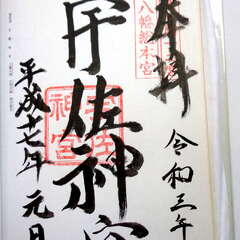 奉拝
令和三年
八幡総本宮
宇佐神宮
神宮
平成十七年 元日